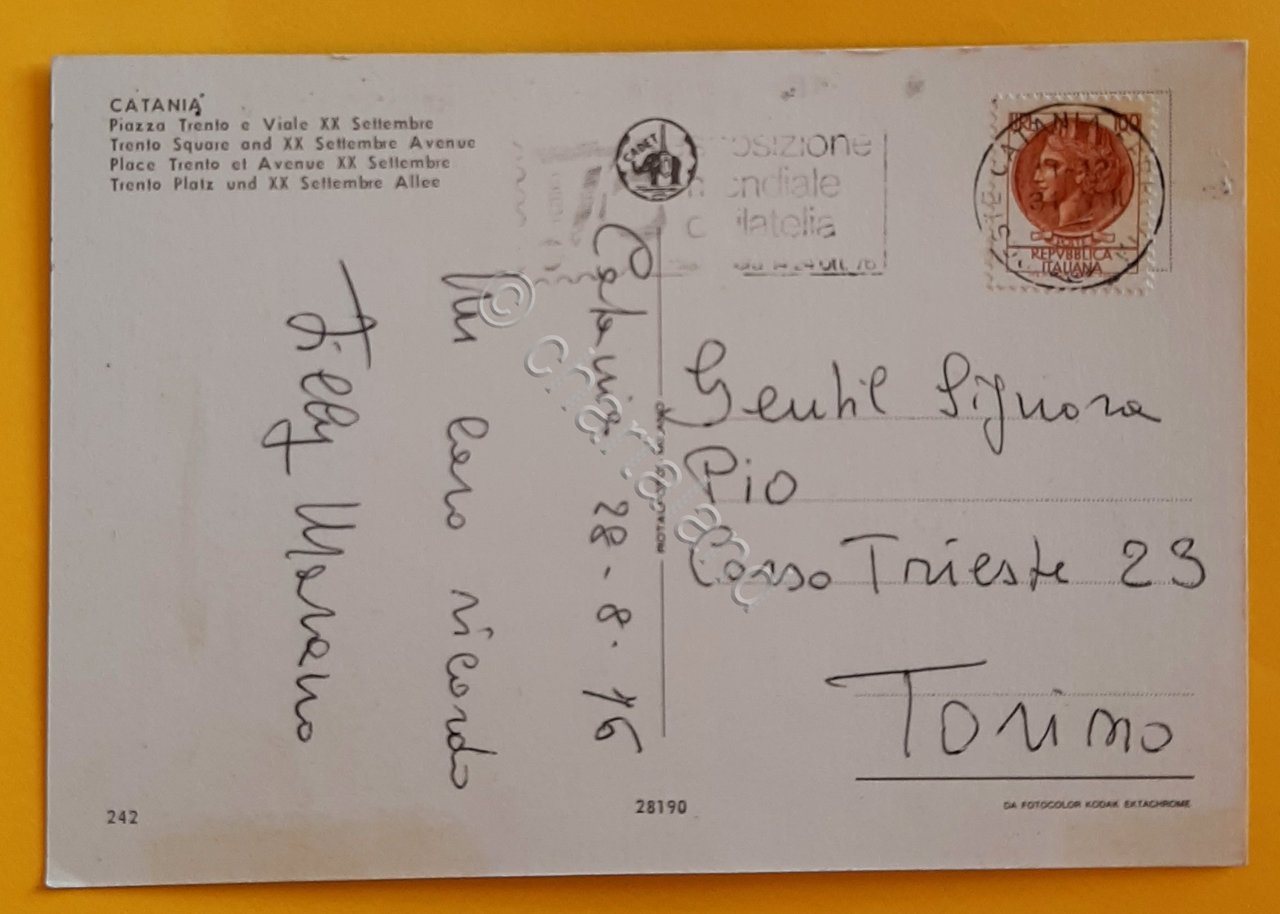 CATANIA
Piazza Trento e Viale XX Settembre
Trento Square and XX Settembre Avenue
Place Trento et Avenue XX Settembre
Trento Platz und XX Settembre Allee
CADET
osizione
ndiale
ilatelia
CATANIA
LIRE 100
POSTE
REPVBBLICA
ITALIANA
Catania 28-8-76
Un caro ricordo
Marano
Gentil Signora
Pio
Corso Trieste 23
Torino
242
28190
DA FOTOCOLOR KODAK EKTACHROME
© chartaland